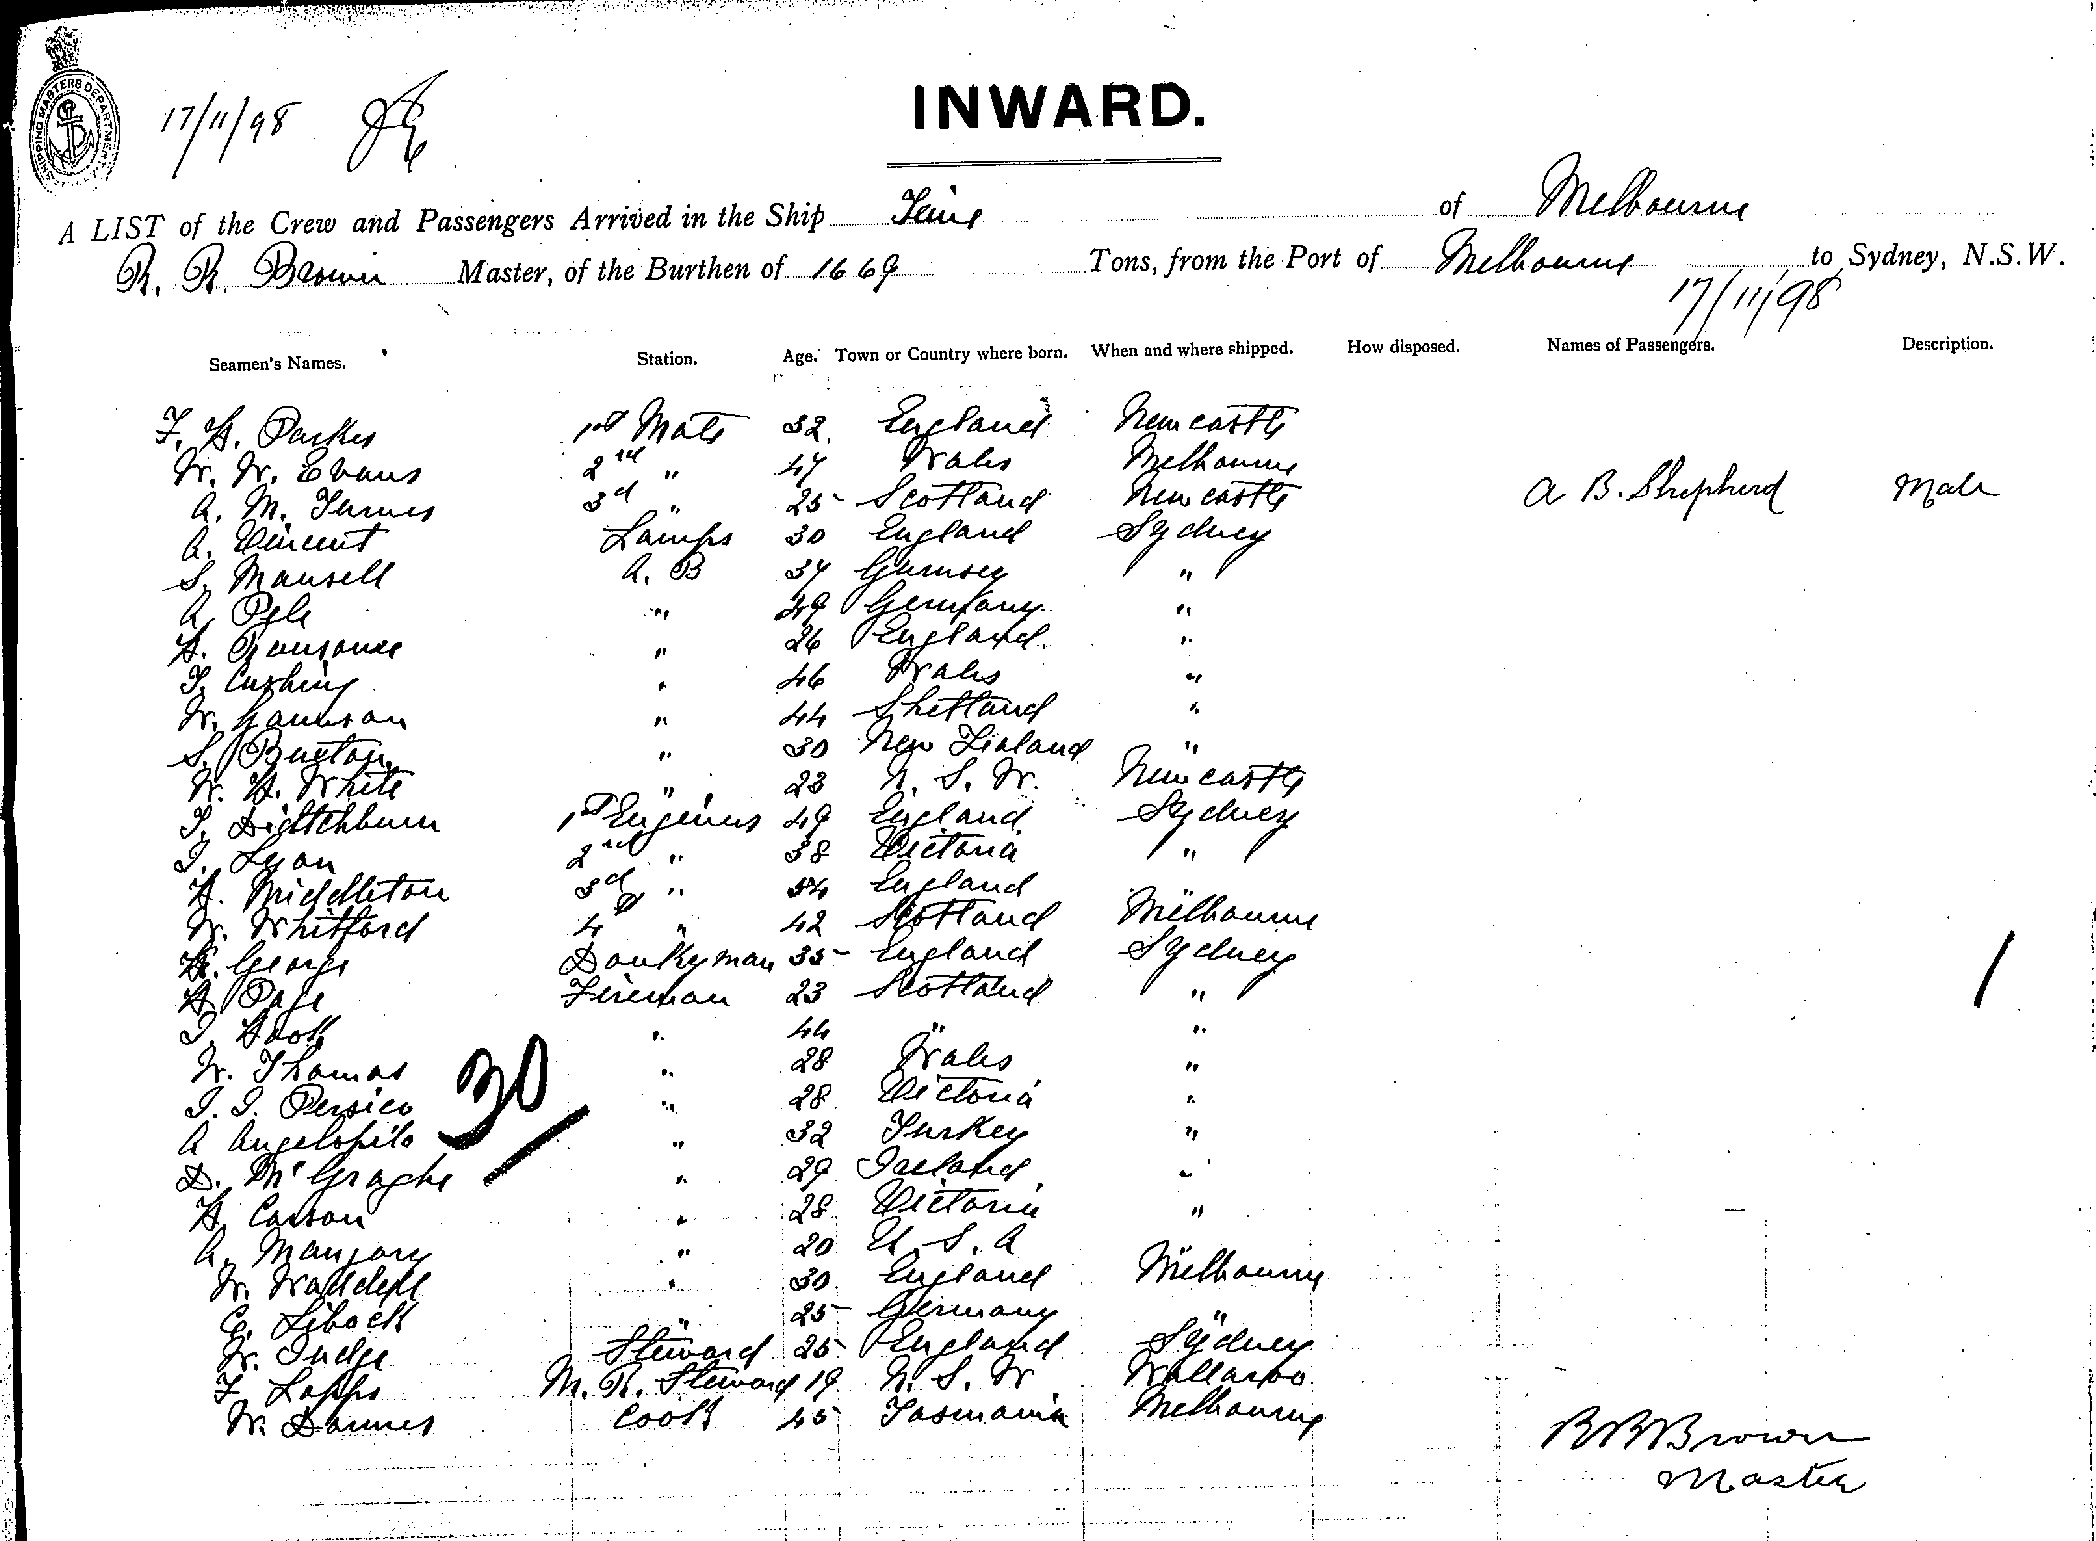 SHIPPING MASTERS DEPARTMENT
17/11/98
INWARD.
A LIST of the Crew and Passengers Arrived in the Ship Time of Melbourne
R. R. Brown Master, of the Burthen of 1669 Tons, from the Port of Melbourne to Sydney, N.S.W.
17/11/98
Seamen's Names. Station. Age. Town or Country where born. When and where shipped. How disposed. Names of Passengers. Description.
F. H. Parkes 1st Mate 32 England Newcastle
W. W. Evans 2nd " 47 Wales Melbourne
A. M. Turner 3d " 25 Scotland Newcastle A B. Shepherd Male
A. Vincent Lamps 30 England Sydney
S. Mansell A. B 37 Gurnsey "
A. 49 Germany "
H. Ransome " 26 England "
T. Cushing " 46 Wales "
W. " 44 Shetland "
S. Buxton " 30 New Zealand "
W. H. White " 23 N. S. W. Newcastle
T. Ditchburn 1st Engineer 49 England Sydney
J. Lyon 2nd " 38 Victoria "
H. Middleton 3d " 54 England "
W. Whitford 4th " 42 Scotland Melbourne
H. George Donkyman 35 England Sydney
H. Page Fireman 23 Scotland "
J. Hook " 44 " "
W. Thomas " 28 Wales "
J. J. Persico " 28 Victoria "
A " 32 Turkey "
D. " 29 Ireland "
H. Carson " 28 Victoria "
A. " 20 U. S. A "
W. Waddell " 30 England Melbourne
C. " 25 Germany "
W. Judge Steward 25 England Sydney
F. Lapps M. R. Steward 19 N. S. W Wallaroo
W. Dannes Cook 45 Tasmania Melbourne
30
1
R R Brown
Master